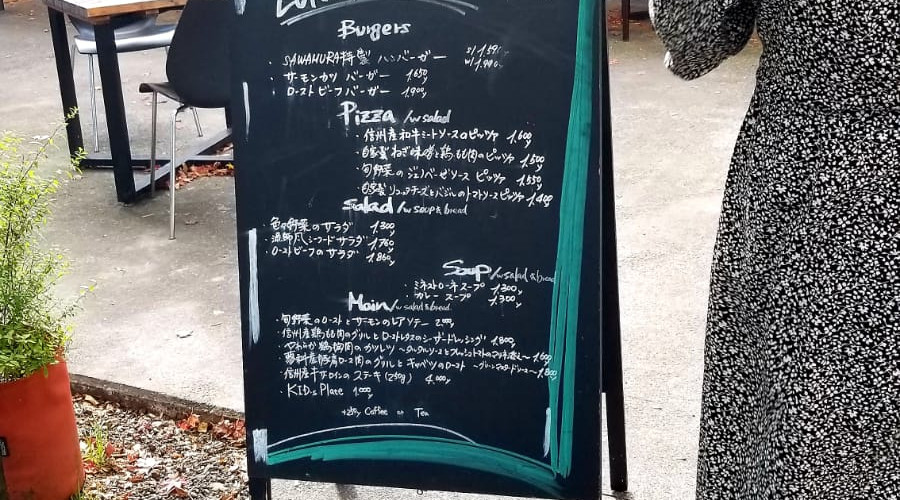 Burgers
・SAWAMURA特製 ハンバーガー
・サーモンカツ バーガー 1,650y
・ローストビーフバーガー 1,900y
Pizza /w salad
・信州産和牛ミートソースのピッツァ 1,600y
・自家製ねぎ味噌と鶏もも肉のピッツァ 1,500y
・旬野菜のジェノベーゼソース ピッツァ 1,550y
・自家製リコッタチーズとバジルのトマトソースピッツァ 1,400y
Salad /w soup & bread
・色々野菜のサラダ 1,300y
・漁師風シーフードサラダ 1,760y
・ローストビーフのサラダ 1,860y
Soup /w salad & bread
・ミネストローネスープ 1,300y
・カレー スープ 1,300y
Main /w salad & bread
・旬野菜のローストとサーモンのレアソテー
・信州産鶏もも肉のグリルとローストレタスのシーザードレッシング 1,800y
・やわらか鶏胸肉のカツレツ ～タルタルソースとフレッシュトマトの 1,600y
・蓼科産豚肩ロース肉のグリルとキャベツのロースト ～グリーンマスタードソース～ 1,800y
・信州産牛サーロインのステーキ (250g) 4,000y
・KIDs Plate 1,000y
Coffee or Tea